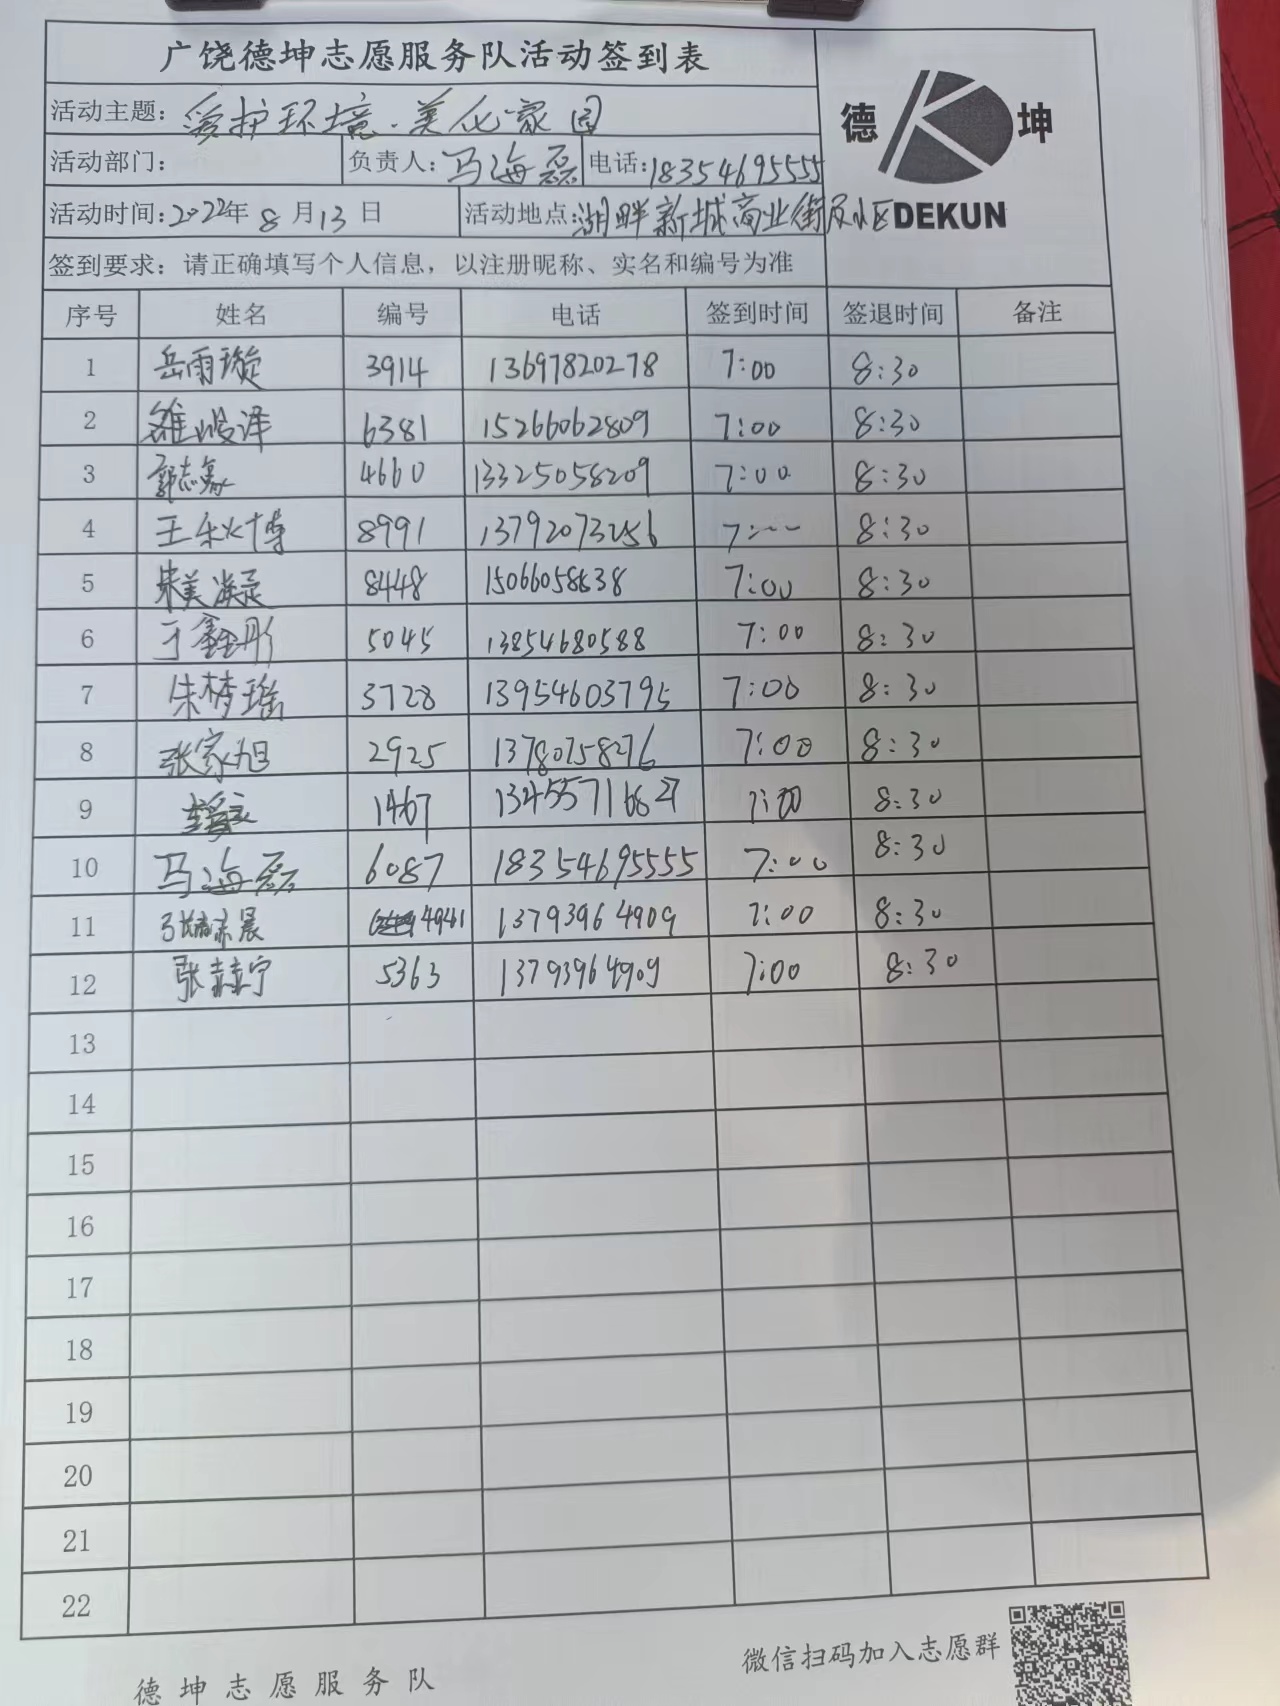 广饶德坤志愿服务队活动签到表
德 坤
DEKUN
活动主题：爱护环境.美化家园
活动部门： 负责人：马海磊 电话：18354695555
活动时间：2022年 8 月 13 日 活动地点：湖畔新城商业街及小区
签到要求：请正确填写个人信息，以注册昵称、实名和编号为准
序号 姓名 编号 电话 签到时间 签退时间 备注
1 岳雨璇 3914 13697820278 7:00 8:30
2 雒峻泽 6381 15266062809 7:00 8:30
3 郭志 4660 13325058209 7:00 8:30
4 王秋博 8991 13792073256 8:30
5 朱美漩 8448 7:00 8:30
6 于鑫彤 5045 13854680588 7:00 8:30
7 朱梦瑶 3728 13954603795 7:00 8:30
8 张家旭 2925 13780758276 7:00 8:30
9 1467 13455716827 8:30
10 马海磊 6087 18354695555 7:00 8:30
11 张 晨 4941 13793964909 7:00 8:30
12 张垚宁 5363 13793964909 7:00 8:30
13
14
15
16
17
18
19
20
21
22
德坤志愿服务队 微信扫码加入志愿群